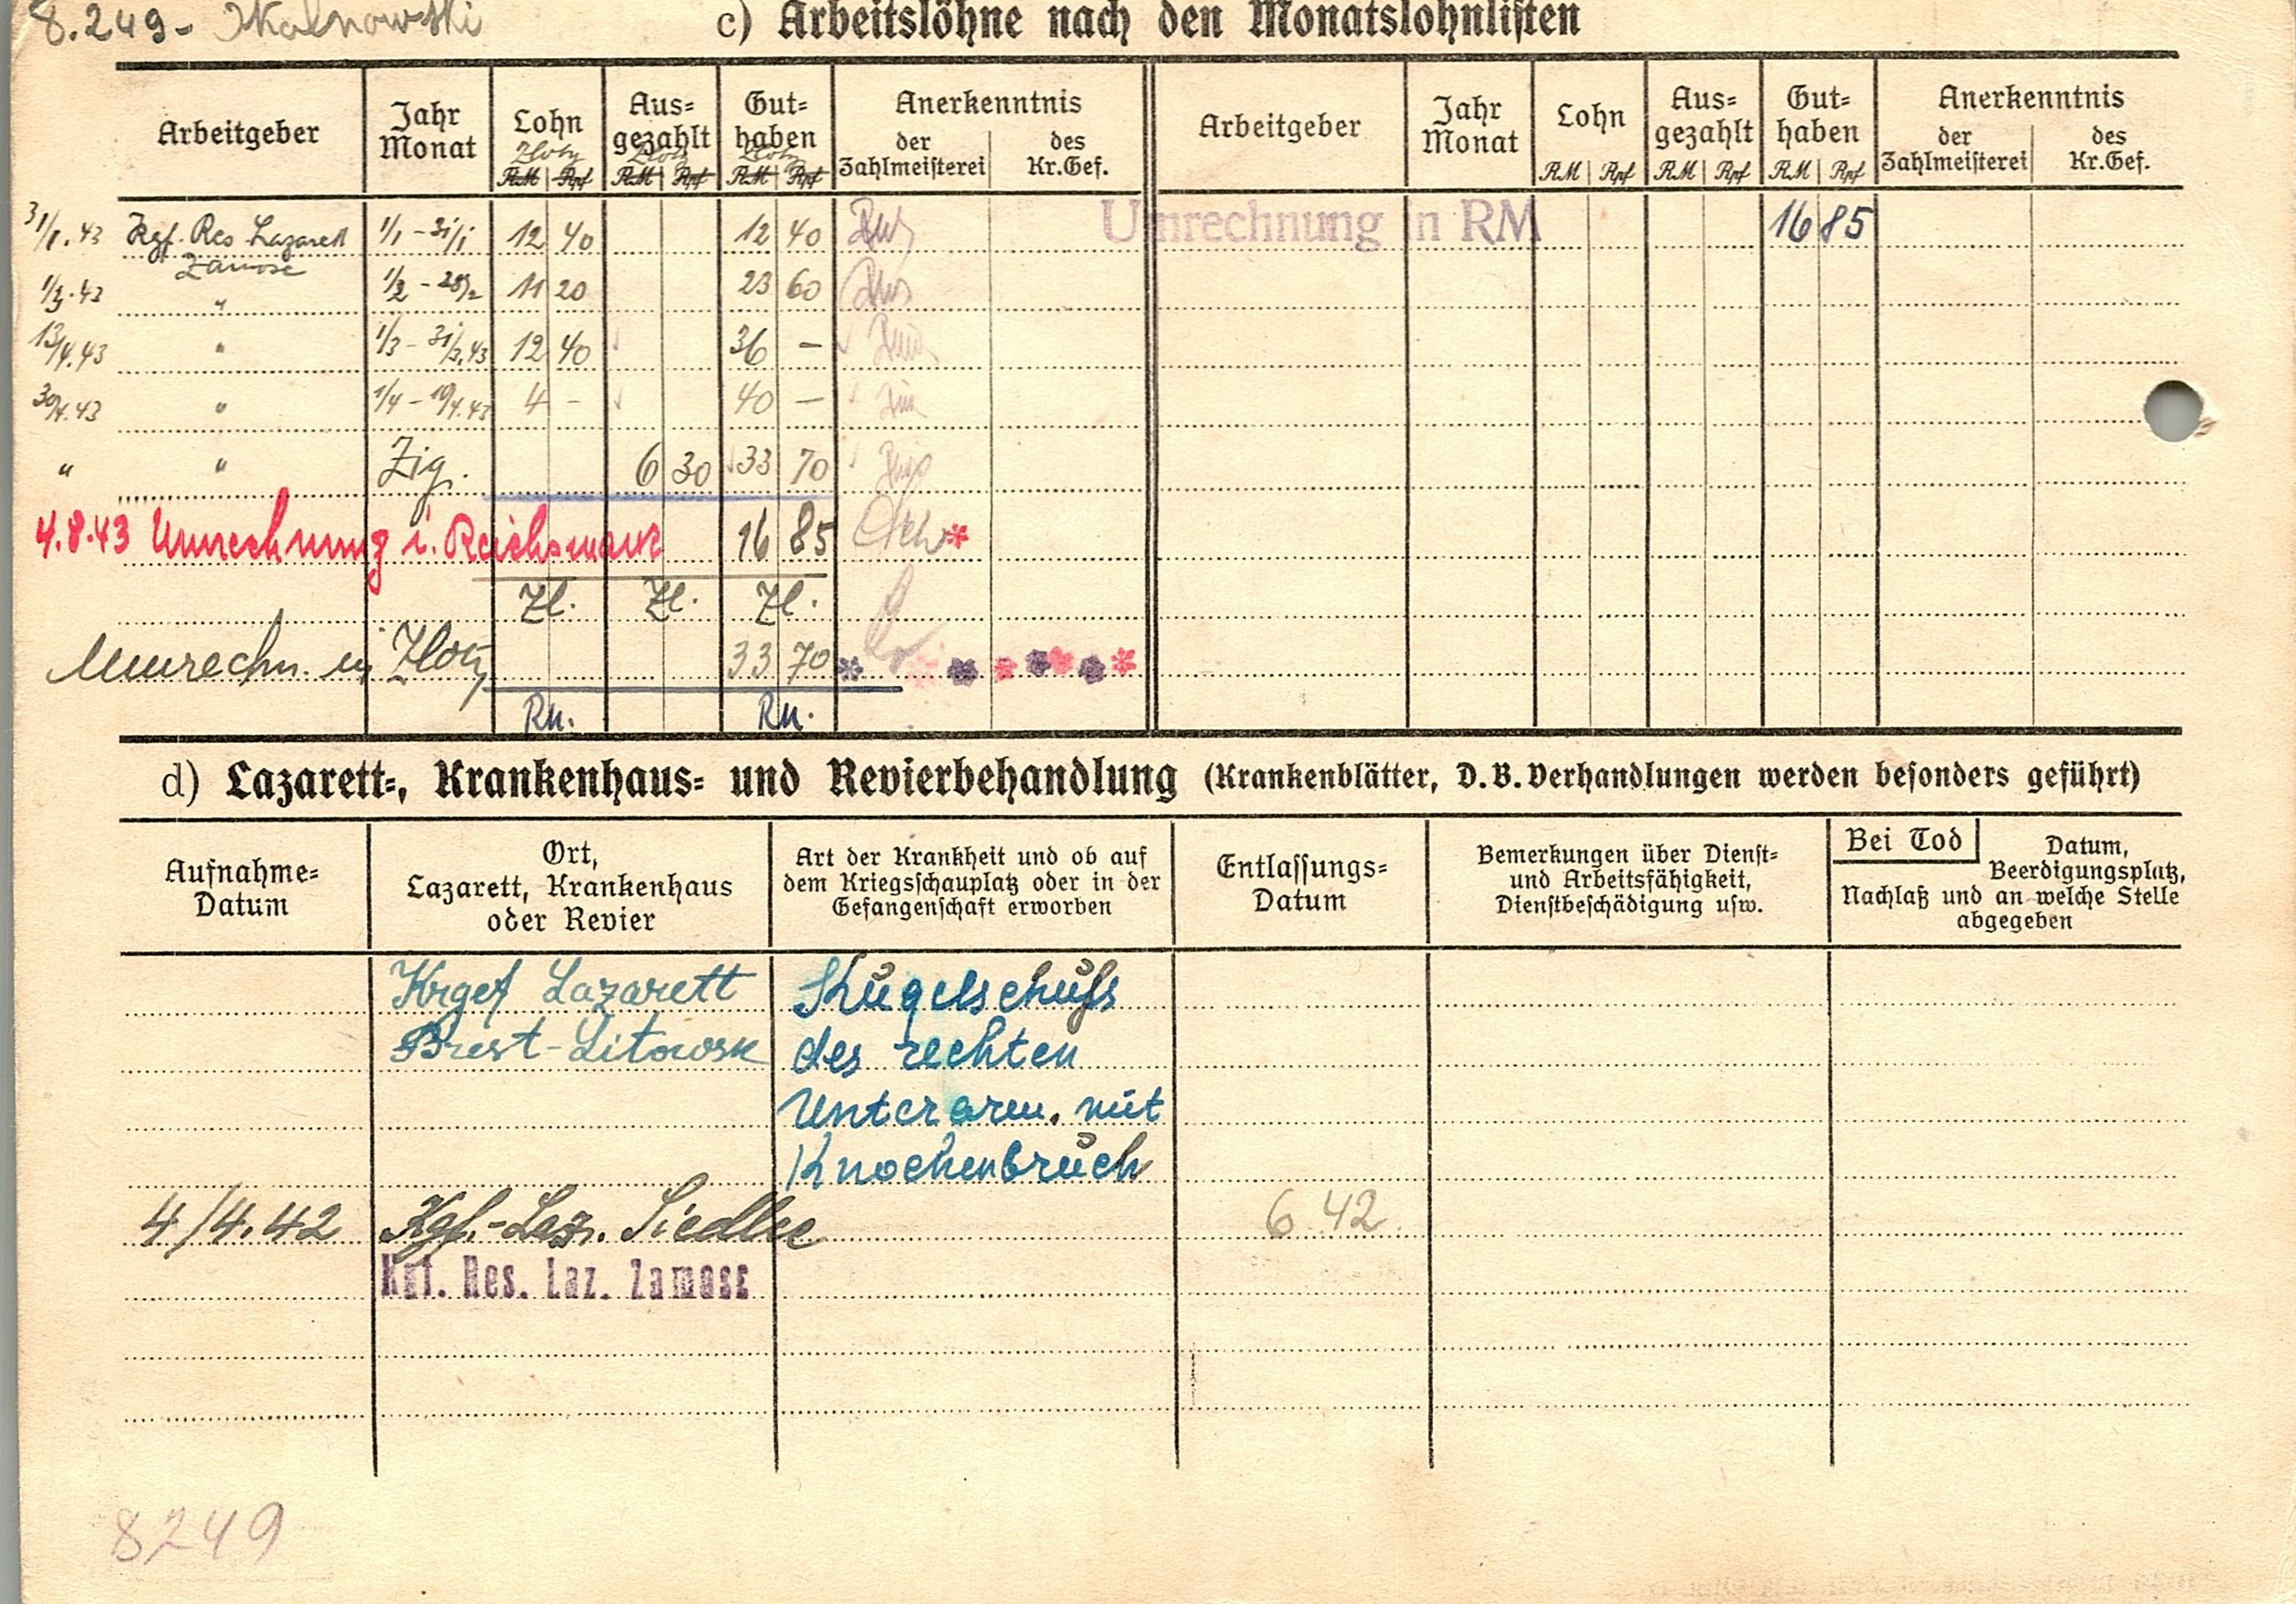 8.249-
c) Arbeitslöhne nach den Monatslohnlisten
Arbeitgeber Jahr Monat Lohn Aus-gezahlt Gut-haben Anerkenntnis der Zahlmeisterei des Kr.Gef. Arbeitgeber Jahr Monat Lohn Aus-gezahlt Gut-haben Anerkenntnis der Zahlmeisterei des Kr.Gef.
Zloty Zloty Zloty
RM Rpf RM Rpf RM Rpf RM Rpf RM Rpf RM Rpf
31/1.43 Kgf. Res Lazarett 1/1 - 31/1 12 40 12 40 Umrechnung in RM 16 85
Zamosc
1/3.43 " 1/2 - 28/2 11 20 23 60
13/4.43 " 1/3 - 31/3.43 12 40 36 —
30/4.43 " 1/4 - 10/4.43 4 - 40 —
" " Zig. 6 30 33 70
4.8.43 Umrechnung i. Reichsmark 16 85
Zl. Zl. Zl.
Umrechn. in Zloty 33 70
Rm. Rm.
d) Lazarett-, Krankenhaus- und Revierbehandlung (Krankenblätter, D.B.Verhandlungen werden besonders geführt)
Aufnahme-
Datum
Ort,
Lazarett, Krankenhaus
oder Revier
Art der Krankheit und ob auf
dem Kriegsschauplatz oder in der
Gefangenschaft erworben
Entlassungs-
Datum
Bemerkungen über Dienst-
und Arbeitsfähigkeit,
Dienstbeschädigung usw.
Bei Tod Datum,
Beerdigungsplatz,
Nachlaß und an welche Stelle
abgegeben
Krgef Lazarett Kugelschuss
Brest-Litowsk des rechten
Unterarm. mit
Knochenbruch
4/4.42 Kgf.-Laz. Siedlce 6 42
Kgf. Res. Laz. Zamosc
8249